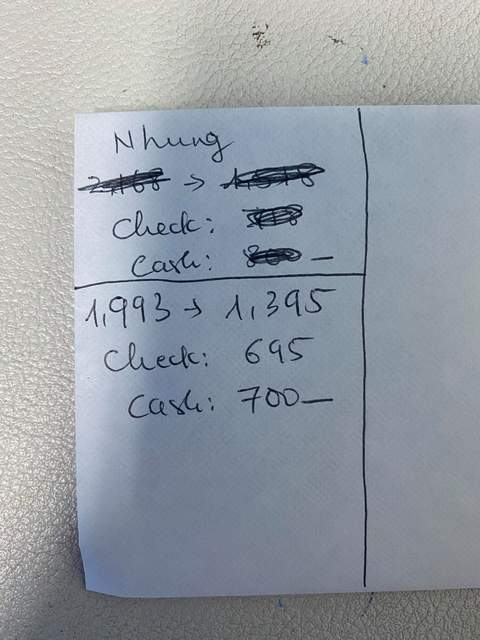 Nhung
→
Check:
Cash: —
1,993 → 1,395
Check: 695
Cash: 700—